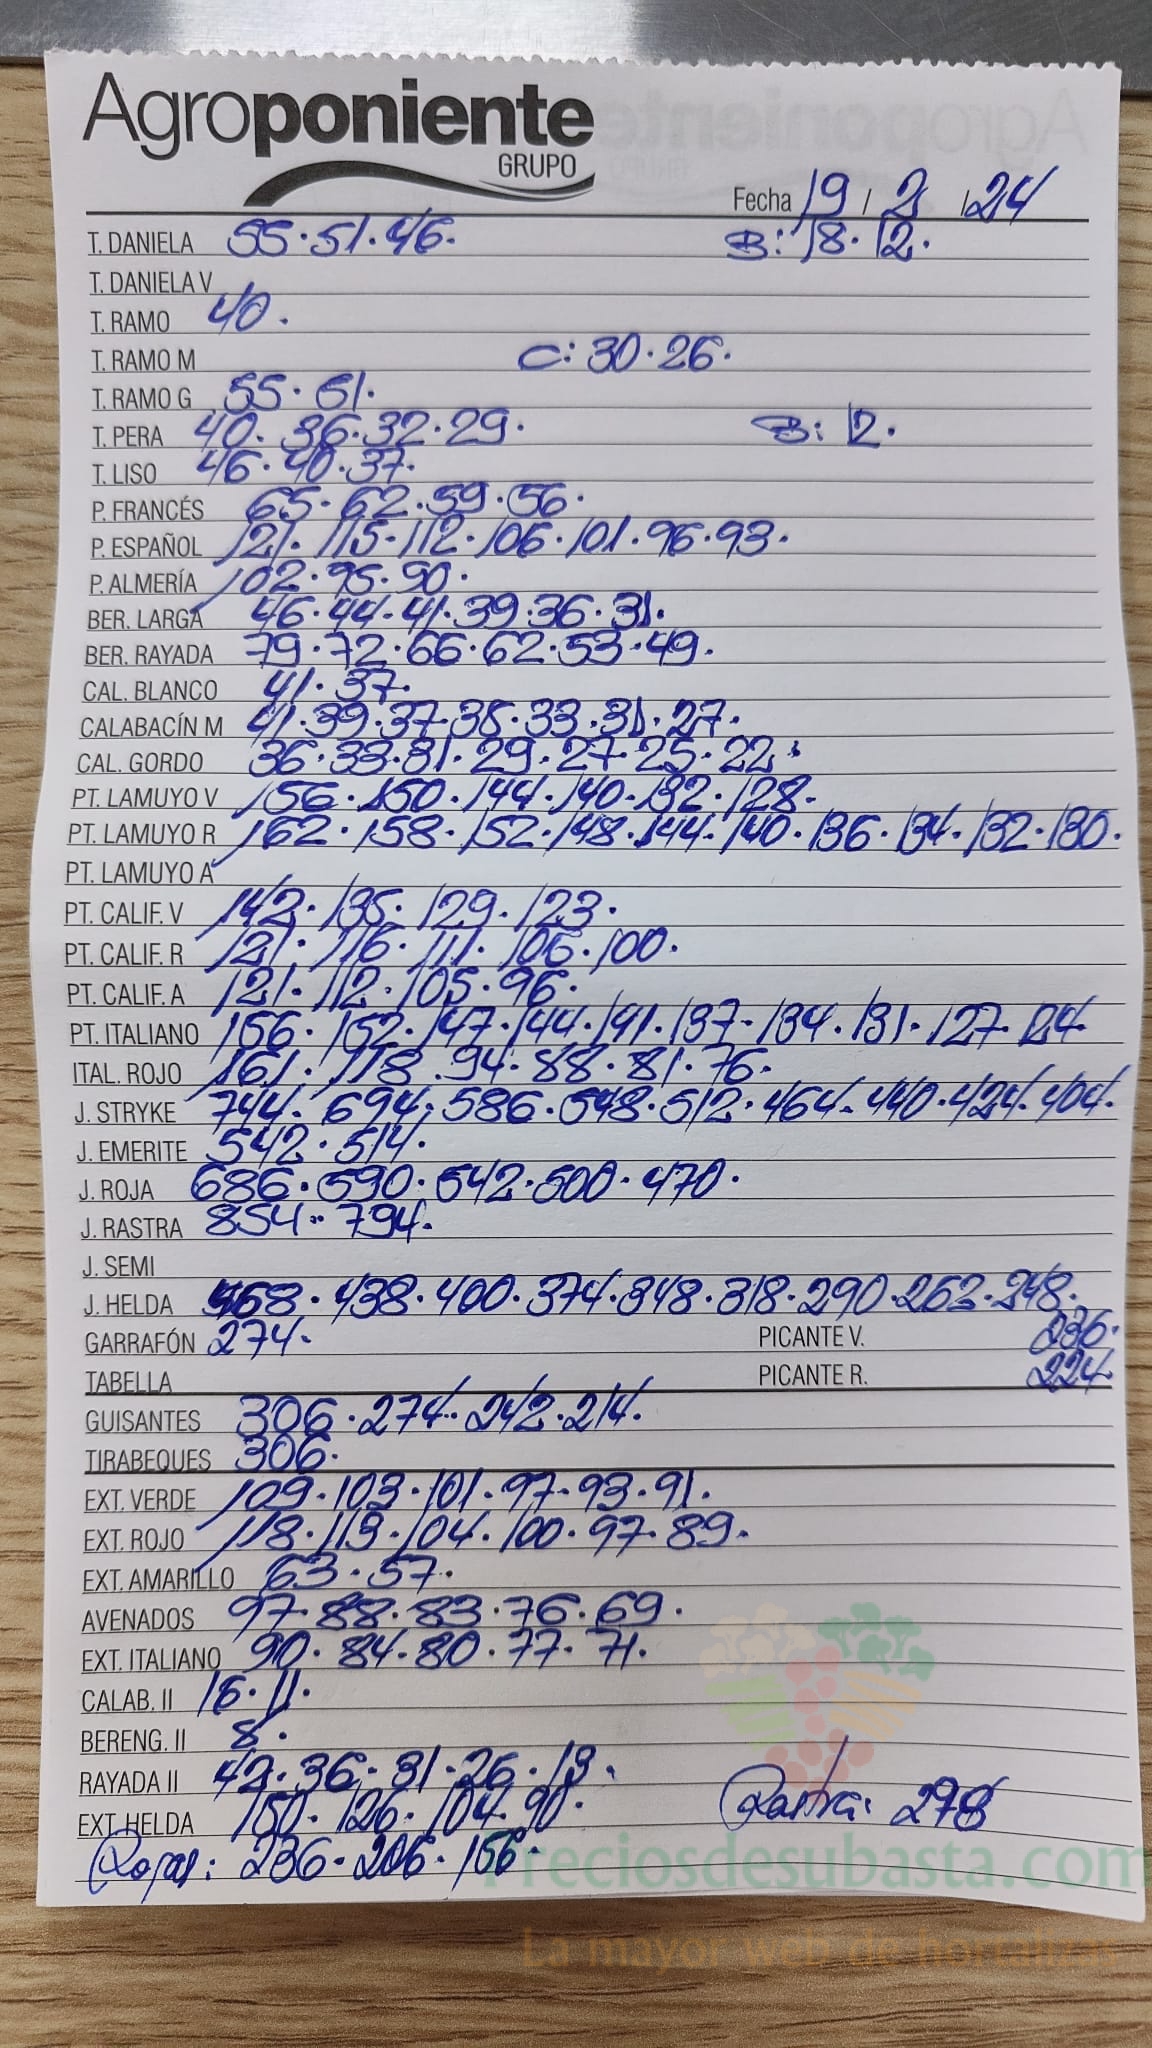 Agroponiente
GRUPO
Fecha 19 / 2 / 24
T. DANIELA 55. 51. 46. B: 18. 12.
T. DANIELA V
T. RAMO 40.
T. RAMO M C: 30. 26.
T. RAMO G 55. 51.
T. PERA 40. 36. 32. 29. B: 12.
T. LISO 46. 40. 37.
P. FRANCÉS 65. 62. 59. 56.
P. ESPAÑOL 121. 115. 112. 106. 101. 96. 93.
P. ALMERÍA 102. 95. 90.
BER. LARGA 46. 44. 41. 39. 36. 31.
BER. RAYADA 79. 72. 66. 62. 53. 49.
CAL. BLANCO 41. 37.
CALABACÍN M 41. 39. 37. 35. 33. 31. 27.
CAL. GORDO 36. 33. 31. 29. 27. 25. 22.
PT. LAMUYO V 156. 150. 144. 140. 132. 128.
PT. LAMUYO R 162. 158. 152. 148. 144. 140. 136. 134. 132. 130.
PT. LAMUYO A
PT. CALIF. V 142. 135. 129. 123.
PT. CALIF. R 121. 116. 111. 106. 100.
PT. CALIF. A 121. 112. 105. 96.
PT. ITALIANO 156. 152. 147. 144. 141. 137. 134. 131. 127. 124.
ITAL. ROJO 161. 118. 94. 88. 81. 76.
J. STRYKE 744. 694. 586. 548. 512. 464. 440. 424. 404.
J. EMERITE 542. 514.
J. ROJA 686. 590. 542. 500. 470.
J. RASTRA 854. 794.
J. SEMI
J. HELDA 468. 438. 400. 374. 348. 318. 290. 262. 248.
GARRAFÓN 274. PICANTE V. 236.
TABELLA PICANTE R. 224
GUISANTES 306. 274. 242. 214.
TIRABEQUES 306.
EXT. VERDE 109. 103. 101. 97. 93. 91.
EXT. ROJO 118. 113. 104. 100. 97. 89.
EXT. AMARILLO 63. 57.
AVENADOS 97. 88. 83. 76. 69.
EXT. ITALIANO 90. 84. 80. 77. 71.
CALAB. II 16. 11.
BERENG. II 8.
RAYADA II 42. 36. 31. 26. 13.
EXT. HELDA 150. 126. 104. 90. Rastra: 278
Rojas: 236. 206. 156.
Preciosdesubasta.com
La mayor web de hortalizas